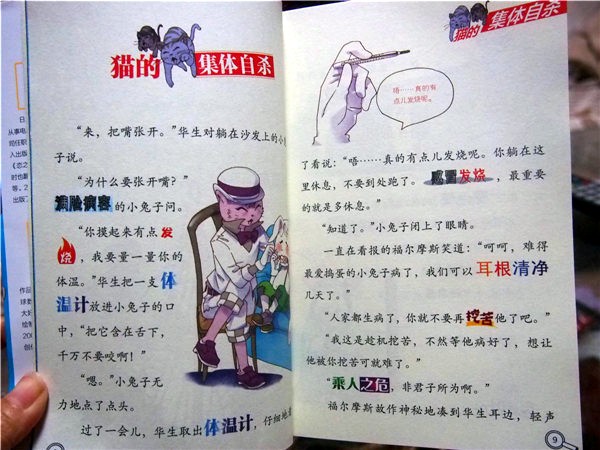 猫的
集体自杀
“来，把嘴张开。”华生对躺在沙发上的小
子说。
“为什么要张开嘴？”
满脸病容的小兔子问。
“你摸起来有点发
烧，我要量一量你的
体温。”华生把一支体
温计放进小兔子的口
中，“把它含在舌下，
千万不要咬啊！”
“嗯。”小兔子无
力地点了点头。
过了一会儿，华生取出体温计，仔细地
猫的
集体自杀
唔……真的有
点儿发烧呢。
了看说：“唔……真的有点儿发烧呢。你躺在这
里休息，不要到处跑了。感冒发烧，最重要
的就是多休息。”
“知道了。”小兔子闭上了眼睛。
一直在看报的福尔摩斯笑道：“呵呵，难得
最爱捣蛋的小兔子病了，我们可以耳根清净
几天了。”
“人家都生病了，你就不要再挖苦他了吧。”
“我这是趁机挖苦，不然等他病好了，想让
他被你挖苦可就难了。”
“乘人之危，非君子所为啊。”
福尔摩斯故作神秘地凑到华生耳边，轻声
9